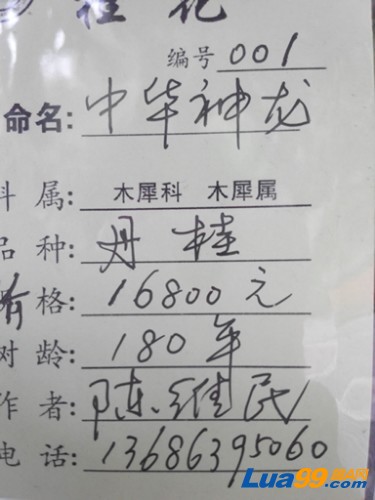 桂花
编号 001
命名: 中华神龙
科 属: 木犀科 木犀属
品 种: 丹桂
价 格: 16800元
树 龄: 180年
作 者: 陈维民
电 话: 13686395060
Lua99.com